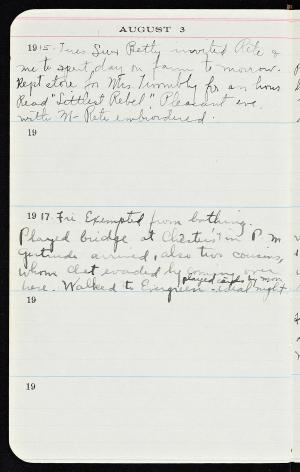 AUGUST 3
1915. Tues Sue Betty invited Pete &
me to spent day on farm to morrow.
Kept store for Mrs. Trombly for an hour
Read "Littlest Rebel" Pleasant eve.
with M- Pete embroidered.
19
1917. Fri Exempted from bathing.
Played bridge at Chester's in P. M
Gertrude arrived, also two cousins,
whom Chet evaded by coming over
here. Walked to Evergreen - ideal night
played cards by moon
19
19